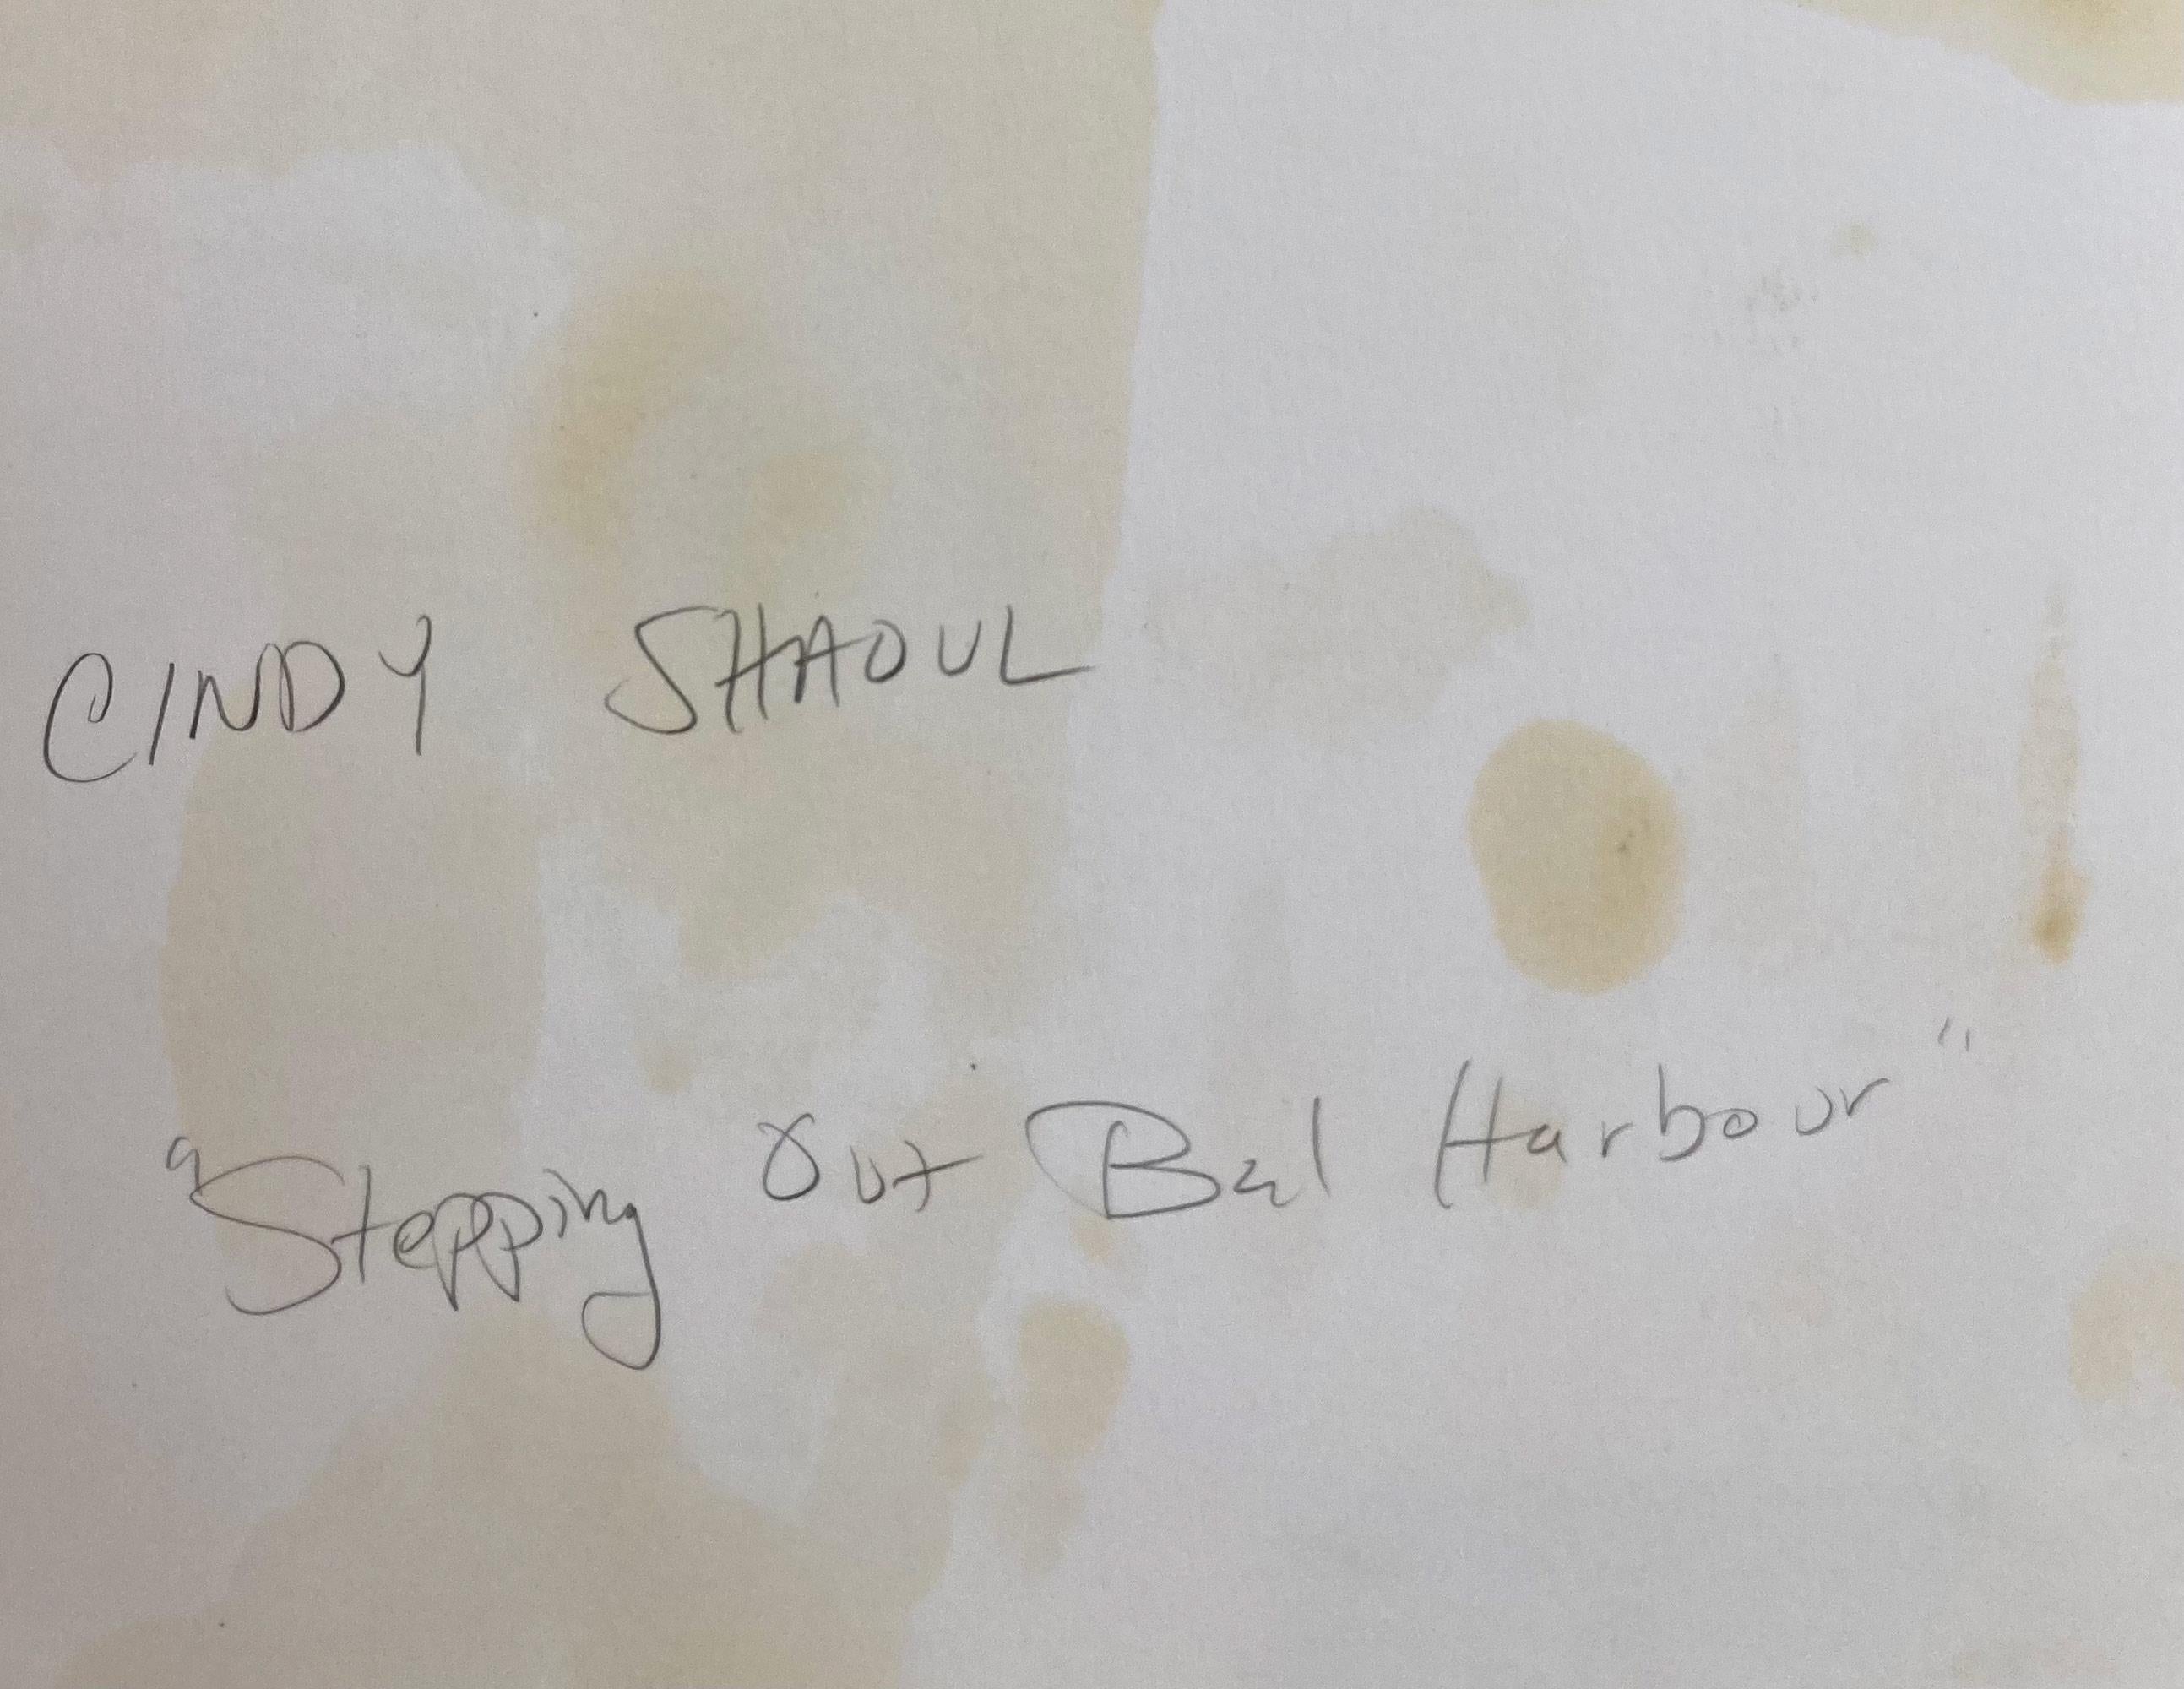 CINDY SHAOUL
"Stepping Out Bal Harbour"